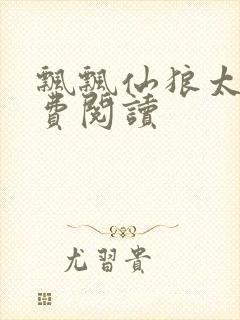 飄飄仙狼太
費閱讀
尤習貴